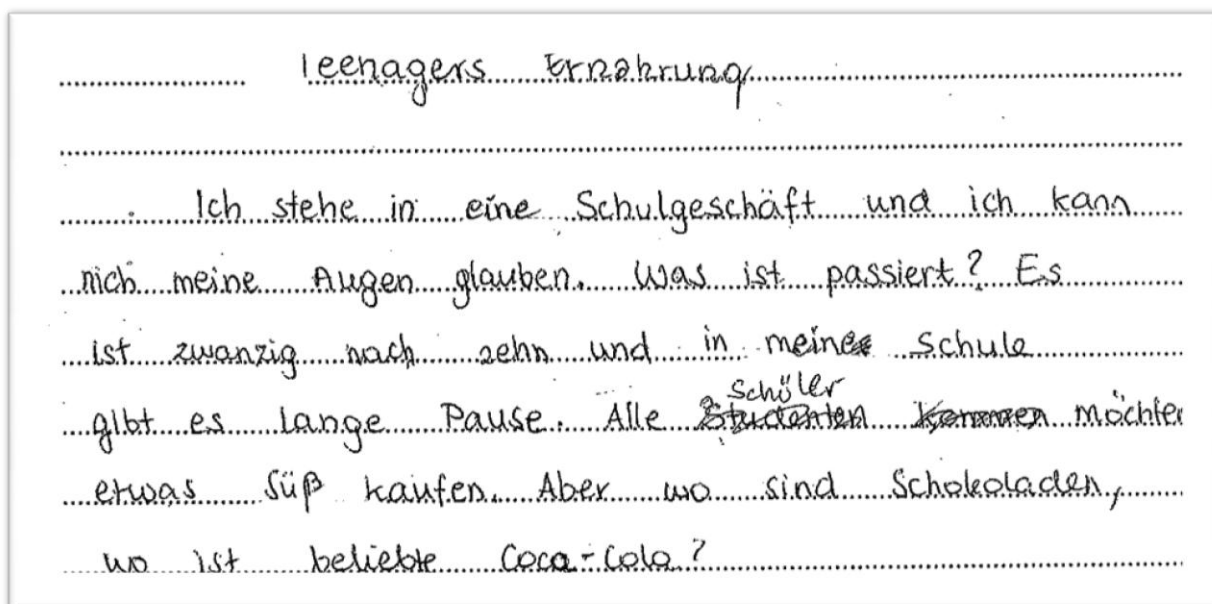 Teenagers Ernährung
Ich stehe in eine Schulgeschäft und ich kann
nich meine Augen glauben. Was ist passiert? Es
ist zwanzig nach zehn und in meine Schule
gibt es lange Pause. Alle Schüler möchten
etwas süß kaufen. Aber wo sind Schokoladen,
wo ist beliebte Coca-Cola?